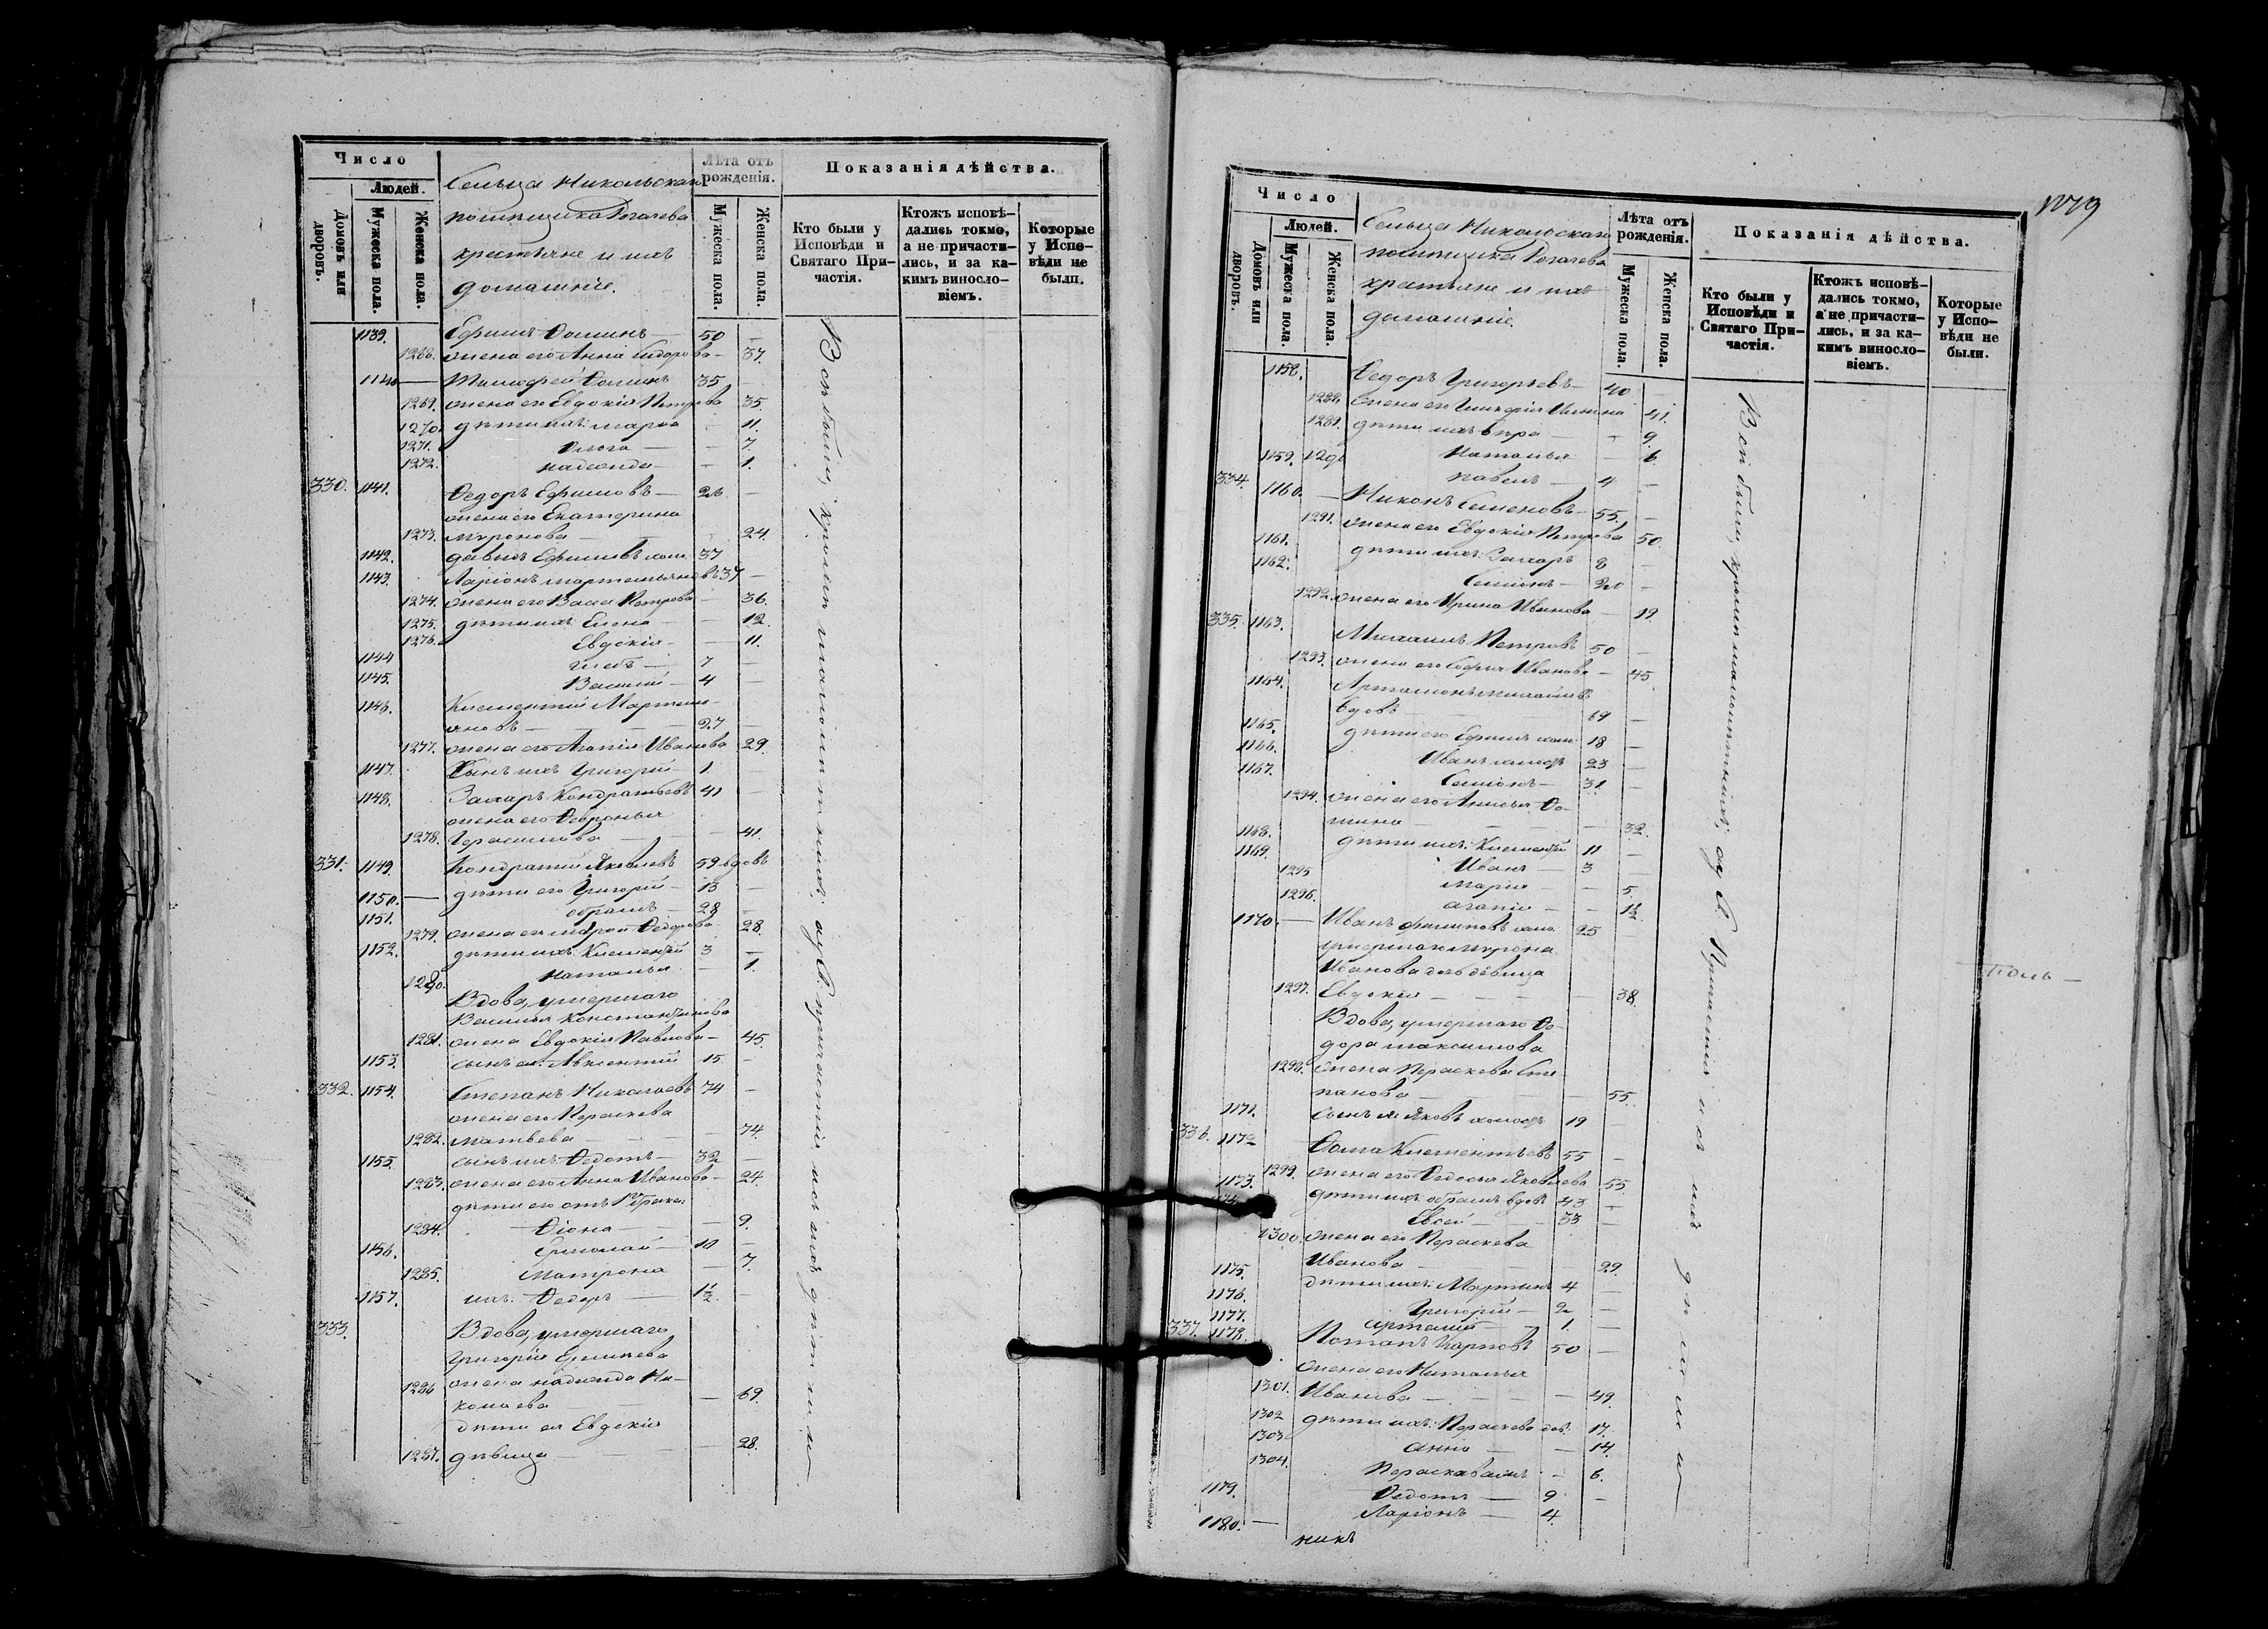 Число
Людей.
Домовъ или дворовъ.
Мужеска пола.
Женска пола.
Сельца Никольскаго
помѣщика Рогачева
крестьяне и ихъ
домашніе.
Лѣта отъ рожденія.
Мужеска пола.
Женска пола.
Показанія дѣйства.
Кто были у Исповѣди и Святаго Причастія.
Ктожъ исповѣ-
дались токмо,
а не причасти-
лись, и за ка-
кимъ виносло-
віемъ.
Которые
у Испо-
вѣди не
были.
1139. Ефимъ Ѳоминъ — 50 —
1268. жена его Анна Сидорова — 37.
1140 — Тимофей Ѳоминъ 35 —
1269. жена его Евдокія Петрова 35.
1270. дѣти ихъ: Марѳа — 11.
1271. Ольга — 7.
1272. Надежда — 1.
330. 1141. Ѳедоръ Ефимовъ — 26 —
жена его Екатерина
1273. Миронова — 24.
1142. Давидъ Ефимовъ холо. 37
1143. Ларіонъ Мартемьяновъ 37 —
1274. жена его Васса Петрова — 36.
1275. дѣти ихъ: Елена — 12.
1276. Евдокія — 11.
1144 Глебъ — 7 —
1145. Василій — 4 —
1146. Климентій Мартемь-
яновъ — 27 —
1277. жена его Агапія Иванова 29.
1147. Сынъ ихъ Григорій — 1.
1148. Захаръ Кондратьевъ 41 —
жена его Ѳевронья
1278. Герасимова — 41.
331. 1149. Кондратій Яковлевъ 59 вдовъ
1150. — дѣти его Григорій — 13 —
1151. Абрамъ — 28 —
1279. жена его Марѳа Ѳедорова 28.
1152. дѣти ихъ: Климентій 3 —
1280. Наталья — 1.
Вдова, умершаго
Василья Константинова
1281. жена Евдокія Павлова — 45.
1153. сынъ ея: Авксентій 15 —
332. 1154. Степанъ Николаевъ 74 —
жена его Параскева
1282. Матвѣева — 74.
1155. сынъ ихъ Ѳедотъ — 32 —
1283. жена его Анна Иванова — 24.
дѣти его отъ 1го брака:
1284. Ѳіона — 9.
1156. Ермолай — 10 —
1285. Матрона — 7.
1157. ихъ: Ѳедоръ — 1½ —
333. Вдова, умершаго
Григорія Ермилова
1286 жена Надежда Ни-
колаева — 69.
дѣти ея Евдокія
1287. дѣвица — 28.
Всѣ были, кромѣ малолѣтнихъ, а у С. Причастія и съ ихъ дѣтьми
1779
Число
Людей.
Домовъ или дворовъ.
Мужеска пола.
Женска пола.
Сельца Никольскаго
помѣщика Рогачева
крестьяне и ихъ
домашніе.
Лѣта отъ рожденія.
Мужеска пола.
Женска пола.
Показанія дѣйства.
Кто были у Исповѣди и Святаго Причастія.
Ктожъ исповѣ-
дались токмо,
а не причасти-
лись, и за ка-
кимъ виносло-
віемъ.
Которые
у Испо-
вѣди не
были.
1158. Ѳедоръ Григорьевъ — 40 —
1288. жена его Гликерія Ильина 41.
1289. дѣти ихъ Вѣра — 9.
1290 Наталья — 6.
1159. Павелъ — 4 —
334. 1160. — Никонъ Семеновъ — 55. —
1291. жена его Евдокія Петрова 50.
1161. дѣти ихъ: Захаръ 8 —
1162. Семіонъ — 20 —
1292. жена его Ирина Иванова — 19.
335. 1163. Михаилъ Петровъ 50 —
1293. жена его Софья Иванова — 45.
1164. Артамонъ Михайловъ
вдовъ — 69 —
1165. дѣти его Ефимъ холо. 18 —
1166. Иванъ холост. 23 —
1167. Семіонъ — 31 —
1294. жена его Анисья Ѳо-
мина — 32.
1168. дѣти ихъ: Климентій 11 —
1169. Иванъ — 3 —
1295 Марія — 5.
1296. Агапія — 1½.
1170. — Иванъ Филиповъ холо. 25 —
умершаго Мирона
Иванова дочь дѣвица
1297. Евдокія — 38.
Вдова, умершаго Ѳе-
дора Максимова
1298. жена Параскева Сте-
панова — 55.
1171. сынъ ея Яковъ холост. 19
336. 1172 Ѳома Климентьевъ 55 —
1299. жена его Ѳедосья Яковлева 55.
1173. дѣти ихъ: Абрамъ вдовъ 43 —
1174. Евсей — 33 —
1300. жена его Параскева
Иванова — 29.
1175. дѣти ихъ: Мартинъ 4 —
1176. Григорій — 2 —
1177. Артамій — 1. —
337. 1178. Потапъ Карповъ 50 —
жена его Наталья
1301. Иванова — 49.
1302 дѣти ихъ: Параскева дѣв. 17.
1303 Анна — 14.
1304. Параскева — 6.
1179. Ѳедотъ — 9 —
1180. — Ларіонъ — 4.
никъ
Всѣ были, кромѣ малолѣтнихъ, а у С. Причастія и съ ихъ дѣтьми